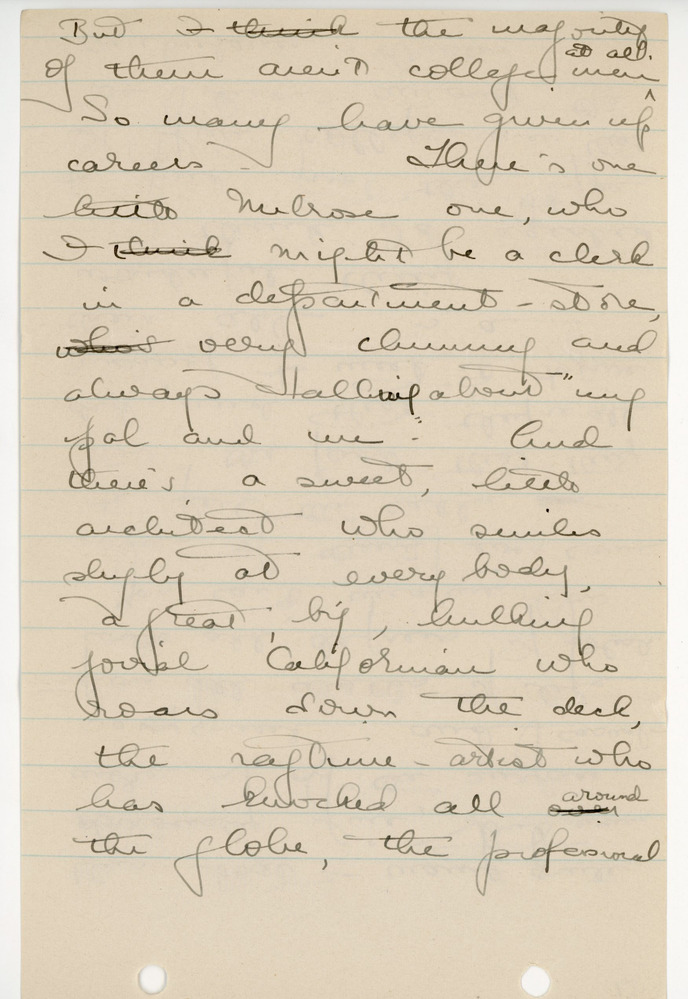 But I think the majority
of them aren't college men at all.
So many have given up
careers - There's one
little Melrose one, who
I think might be a clerk
in a department - store,
who's very chummy and
always talking about "my
pal and me". And
there's a sweet, little
architect who smiles
shyly at every body,
a great, big, hulking
jovial Californian who
roars down the deck,
the ragtime - artist who
has knocked all over around
the globe, the professional